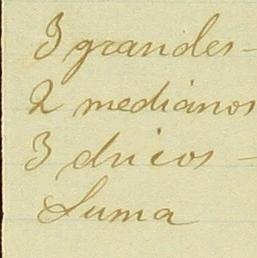 3 grandes -
2 medianos
3 chicos -
Suma